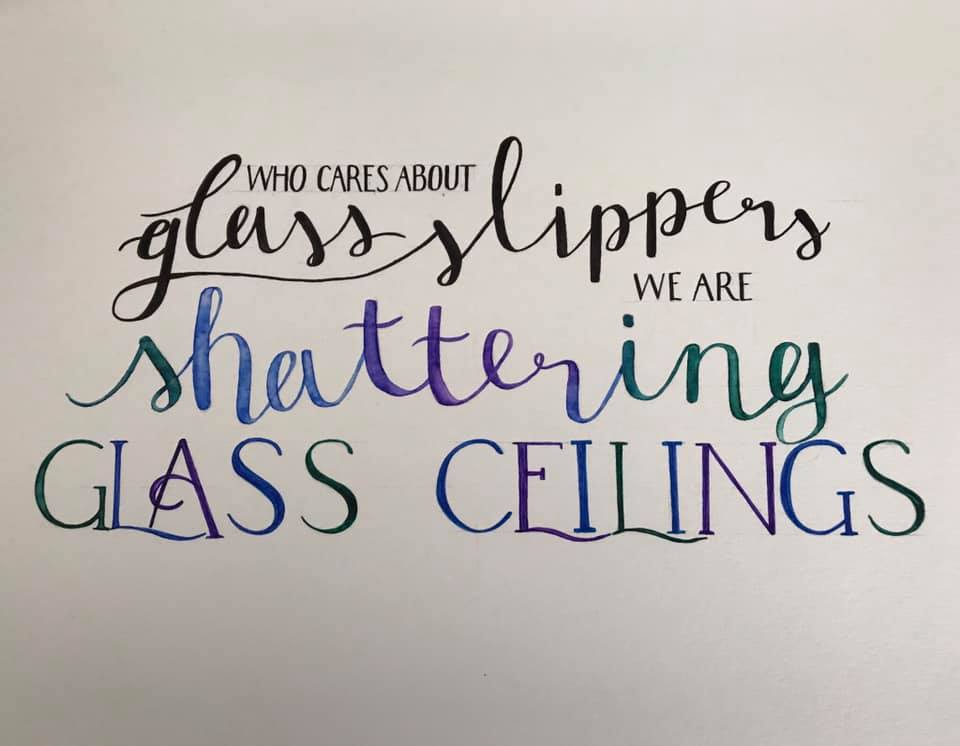 WHO CARES ABOUT
glass slippers
WE ARE
shattering
GLASS CEILINGS